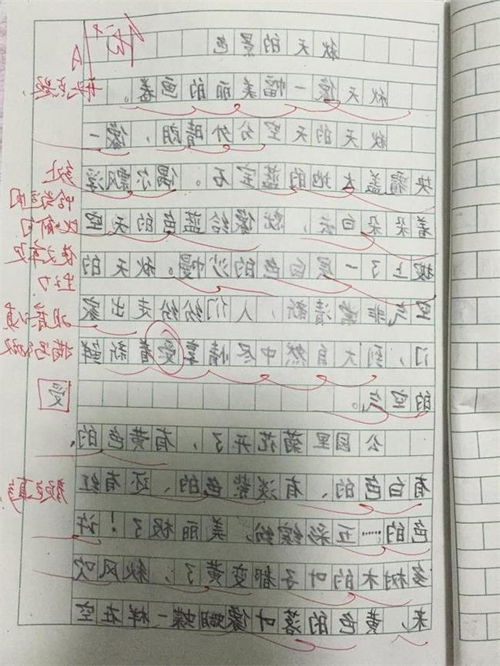 秋天的景色
秋天像一幅美丽的画卷。
秋天的天空分外晴朗，像一
块覆盖大地的蓝宝石。偶尔飘浮
着朵朵白云，就像给蓝色的天空
披上了一层白色的沙幔。秋天的
空气非常清新，人们纷纷走出家
门，到大自然中尽情享受着新鲜
的空气。
公园里菊花开了，有黄色的、
有白色的、有淡紫色的、还有红
色的……五彩缤纷，美丽极了！许
多树木的叶子都变黄了；秋风吹
来，黄色的落叶像蝴蝶一样在空
多处
比喻句
受